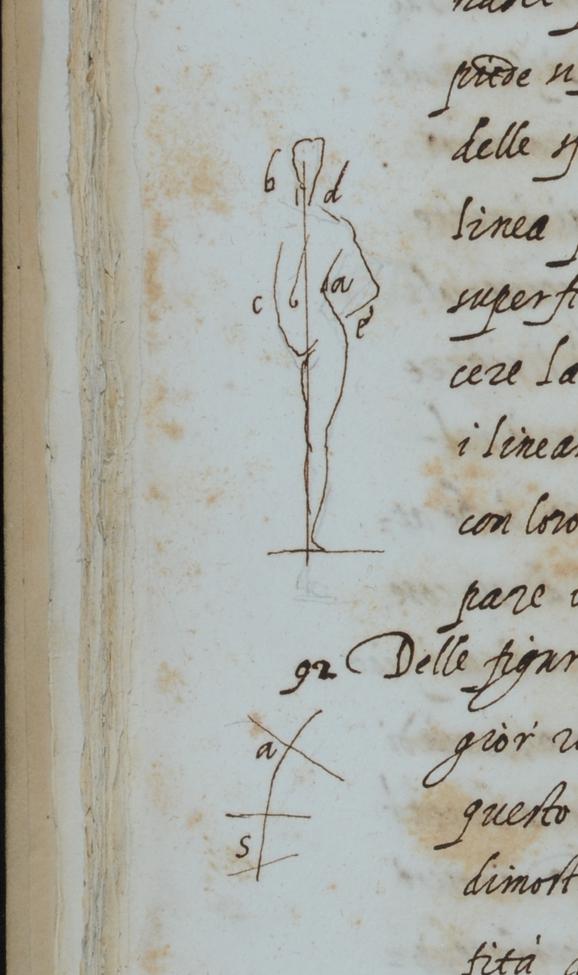 delle
b d
linea
a
c
superfi
e
cere la
i linea
con loro
pare
92 Delle figur
a
gior
questo
S
dimost
sita